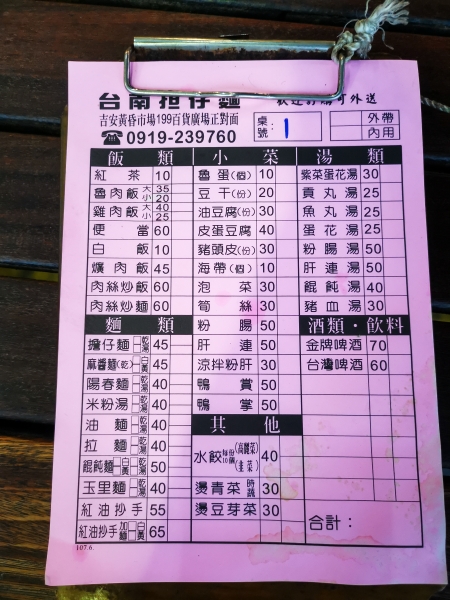 台南担仔麵 歡迎訂購可外送
吉安黃昏市場199百貨廣場正對面
☎0919-239760
桌號： 1 外帶 內用
飯類
紅茶 10
魯肉飯 大 35 小 20
雞肉飯 大 40 小 25
便當 60
白飯 10
爌肉飯 45
肉絲炒飯 60
肉絲炒麵 60
麵類
擔仔麵 乾 湯 45
麻醬麵(乾) 白 黃 45
陽春麵 乾 湯 40
米粉湯 乾 湯 40
油麵 乾 湯 40
拉麵 乾 湯 40
餛飩麵 白 黃 乾 湯 50
玉里麵 乾 湯 40
紅油抄手 55
紅油抄手 加麵 白 黃 65
107.6.
小菜
魯蛋(個) 10
豆干(份) 20
油豆腐(份) 30
皮蛋豆腐 40
豬頭皮(份) 30
海帶(個) 10
泡菜 30
筍絲 30
粉腸 50
肝連 50
涼拌粉肝 30
鴨賞 50
鴨掌 50
其他
水餃 每份10個 (高麗菜) (韭菜) 40
燙青菜 時蔬 30
燙豆芽菜 30
湯類
紫菜蛋花湯 30
貢丸湯 30
魚丸湯 30
蛋花湯 30
粉腸湯 50
肝連湯 50
餛飩湯 40
豬血湯 30
酒類・飲料
金牌啤酒 70
台灣啤酒 60
合計：